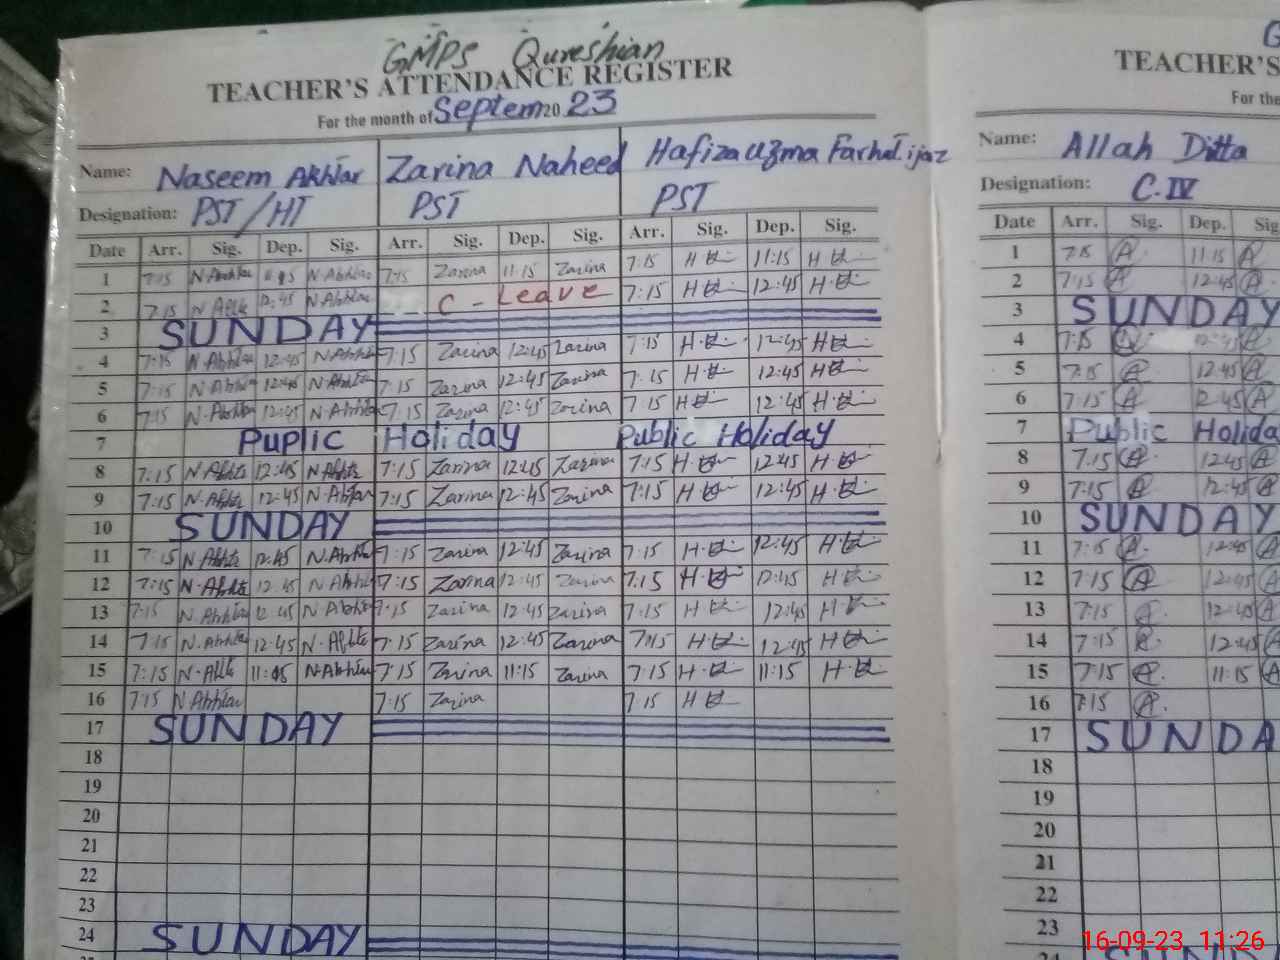 GMPS Qureshian
TEACHER'S ATTENDANCE REGISTER
For the month of Septem 2023
Name: Naseem Akhtar Zarina Naheed Hafiza Uzma Farhat ijaz
Designation: PST/HT PST PST
Date Arr. Sig. Dep. Sig. Arr. Sig. Dep. Sig. Arr. Sig. Dep. Sig.
1 7:15 N-Akhtar N-Akhtar 7:15 Zarina 11:15 Zarina 7:15 11:15
2 7:15 12:45 N-Akhtar C-Leave 7:15 12:45
3 SUNDAY
4 7:15 N-Akhtar 12:45 N-Akhtar 7:15 Zarina 12:45 Zarina 7:15 12:45
5 7:15 N-Akhtar 12:45 N-Akhtar 7:15 Zarina 12:45 Zarina 7:15 12:45
6 7:15 N-Akhtar 12:45 N-Akhtar 7:15 Zarina 12:45 Zarina 7:15 12:45
7 Puplic Holiday Public Holiday
8 7:15 12:45 7:15 Zarina 12:45 Zarina 7:15 12:45
9 7:15 12:45 7:15 Zarina 12:45 Zarina 7:15 12:45
10 SUNDAY
11 7:15 12:45 N-Akhtar 7:15 Zarina 12:45 Zarina 7:15 12:45
12 7:15 12:45 7:15 Zarina 12:45 Zarina 7:15 12:45
13 7:15 N-Akhtar 12:45 7:15 Zarina 12:45 Zarina 7:15 12:45
14 7:15 N-Akhtar 12:45 7:15 Zarina 12:45 Zarina 7:15 12:45
15 7:15 N-Akhtar 7:15 Zarina 11:15 Zarina 7:15 11:15
16 7:15 N-Akhtar 7:15 Zarina 7:15
17 SUNDAY
18
19
20
21
22
23
24 SUNDAY
G
TEACHER'S
For the
Name: Allah Ditta
Designation: C.IV
Date Arr. Sig. Dep. Sig
1 7:15 A 11:15 A
2 7:15 A 12:45 A
3 SUNDAY
4 7:15 A
5 7:15 A 12:45 A
6 7:15 A 12:45 A
7 Public Holida
8 7:15 A 12:45 A
9 7:15 A 12:45 A
10 SUNDAY
11 7:15 A 12:45 A
12 7:15 A 12:45 A
13 7:15 A 12:45 A
14 7:15 A 12:45 A
15 7:15 A 11:15 A
16 7:15 A
17 SUNDA
18
19
20
21
22
23
24 SUNDAY
16-09-23 11:26